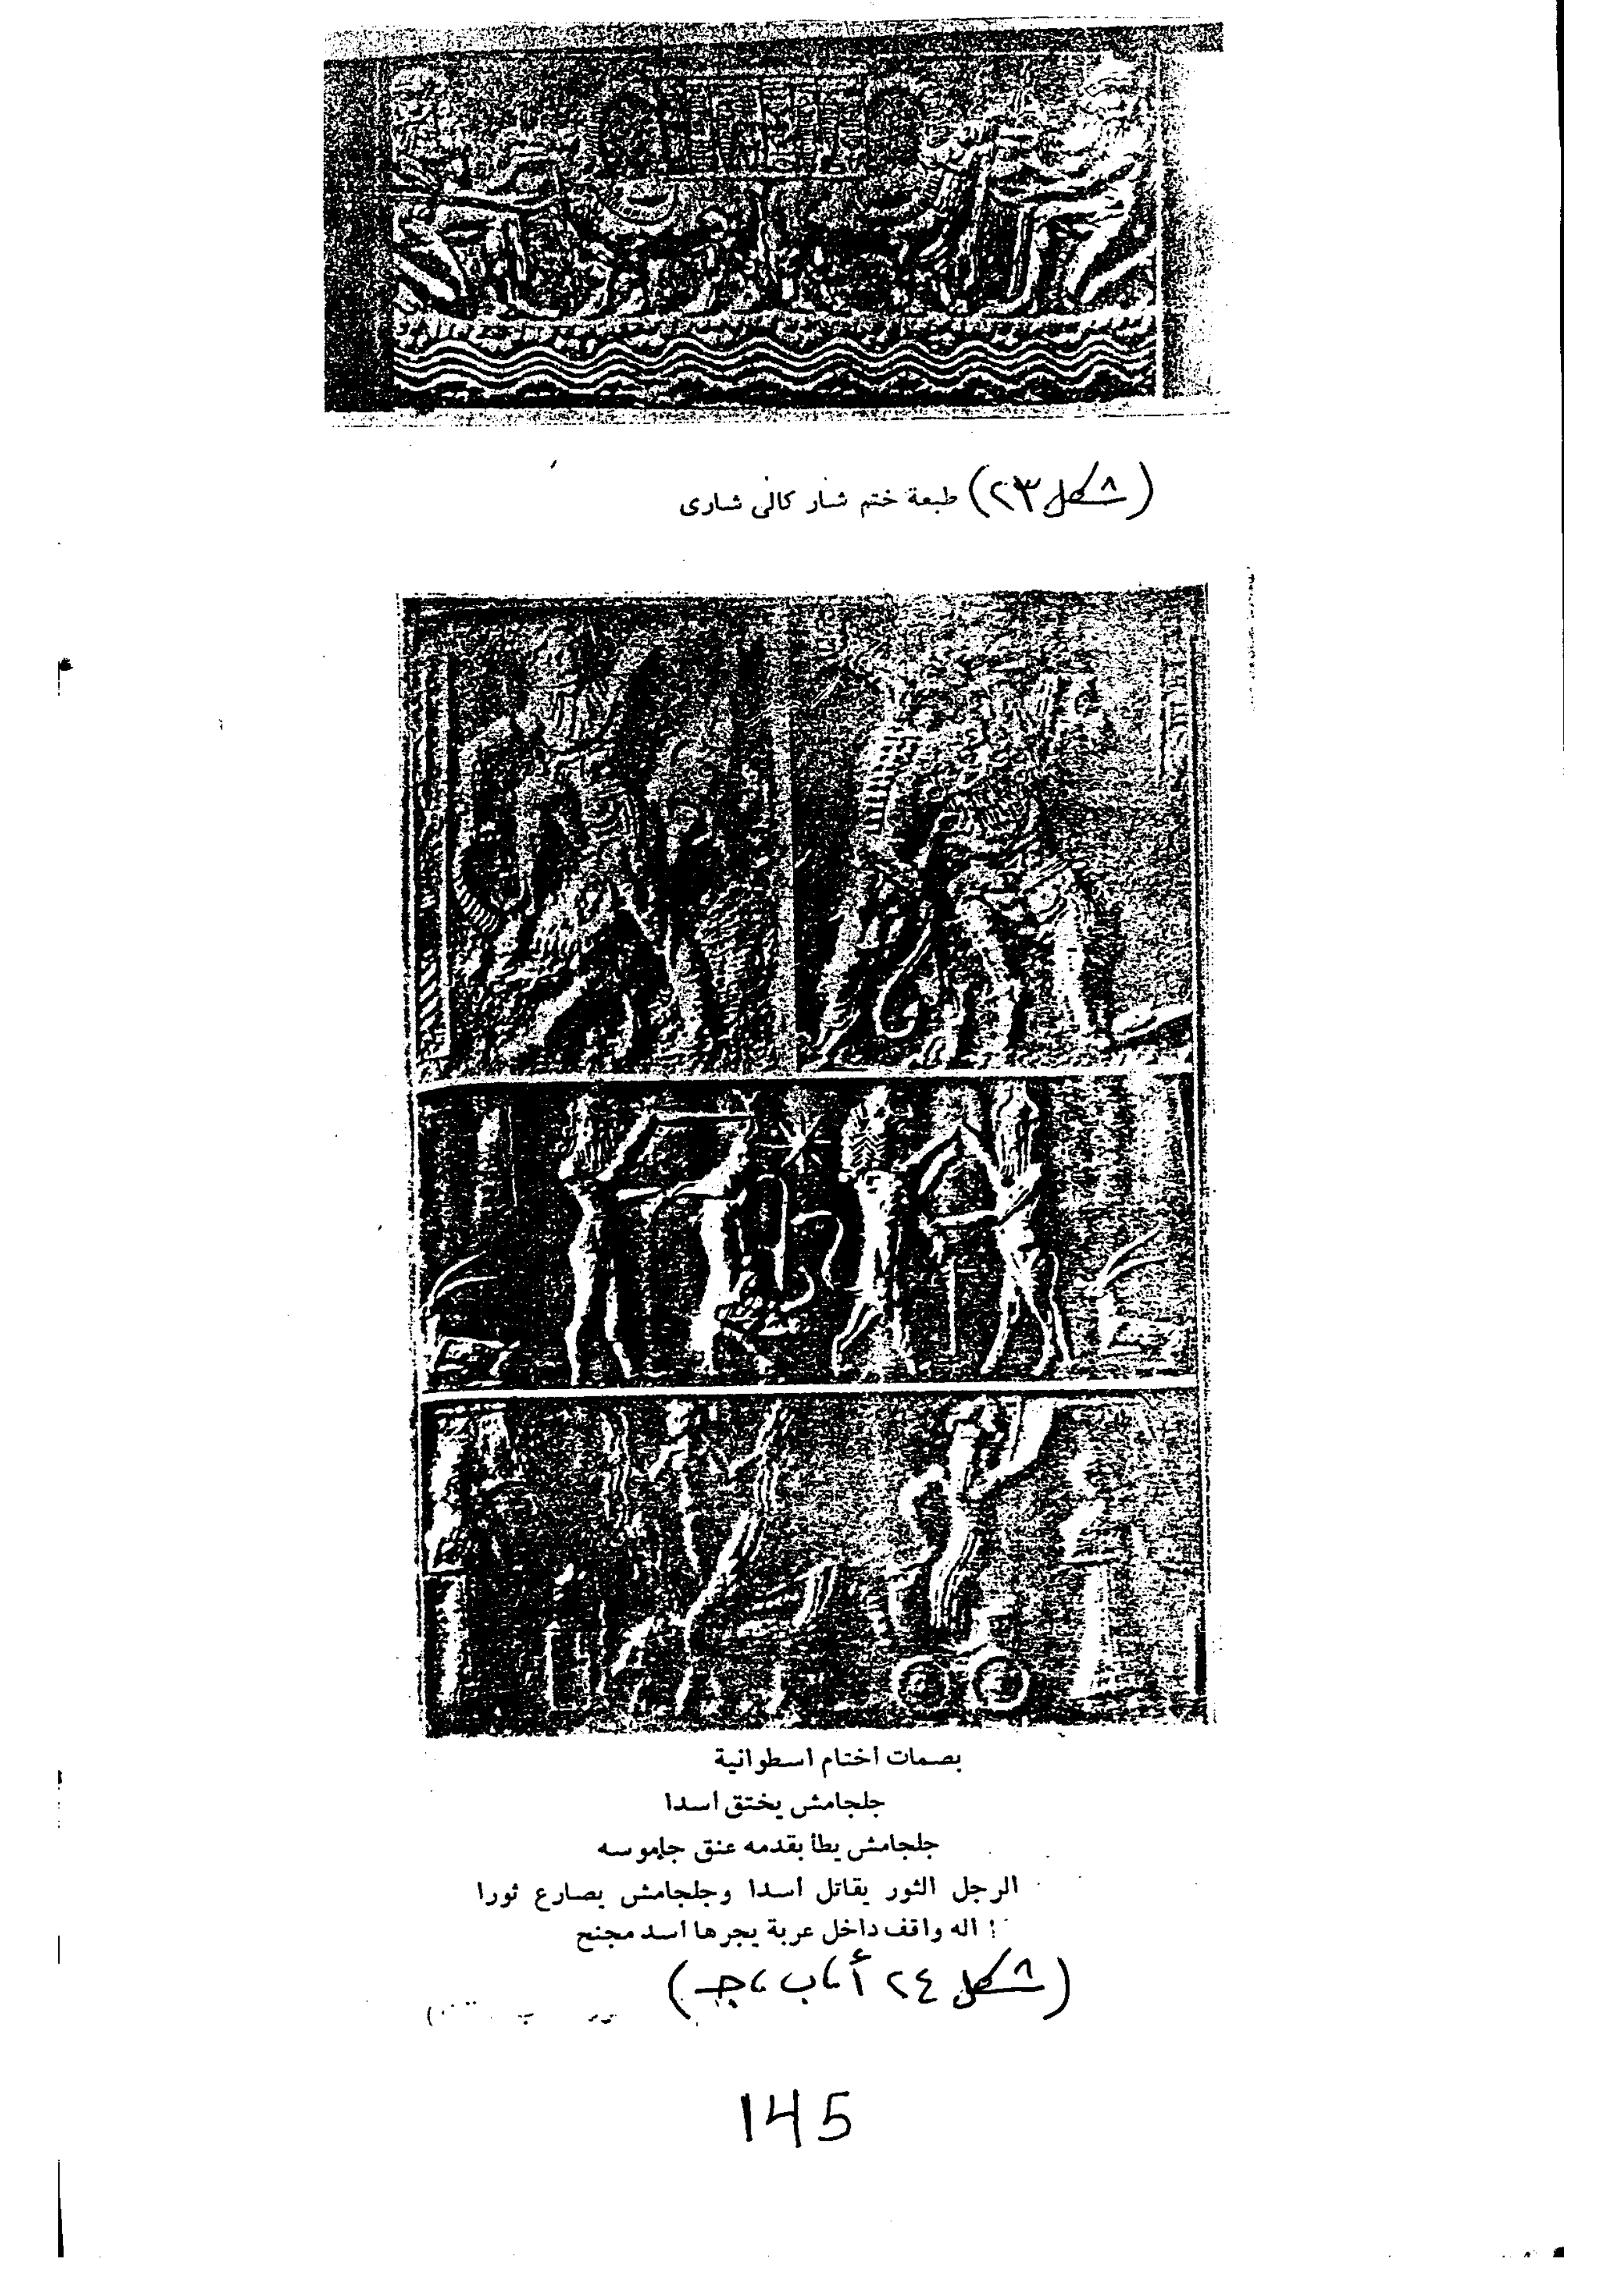 (شكل ٢٣) طبعة ختم شار كالى شارى
بصمات أختام اسطوانية
جلجامش يختق أسدا
جلجامش يطأ بقدمه عنق جاموسه
الرجل الثور يقاتل أسدا وجلجامش يصارع ثورا
اله واقف داخل عربة يجرها أسد مجنح
(شكل ٢٤ أ، ب، جـ)
145